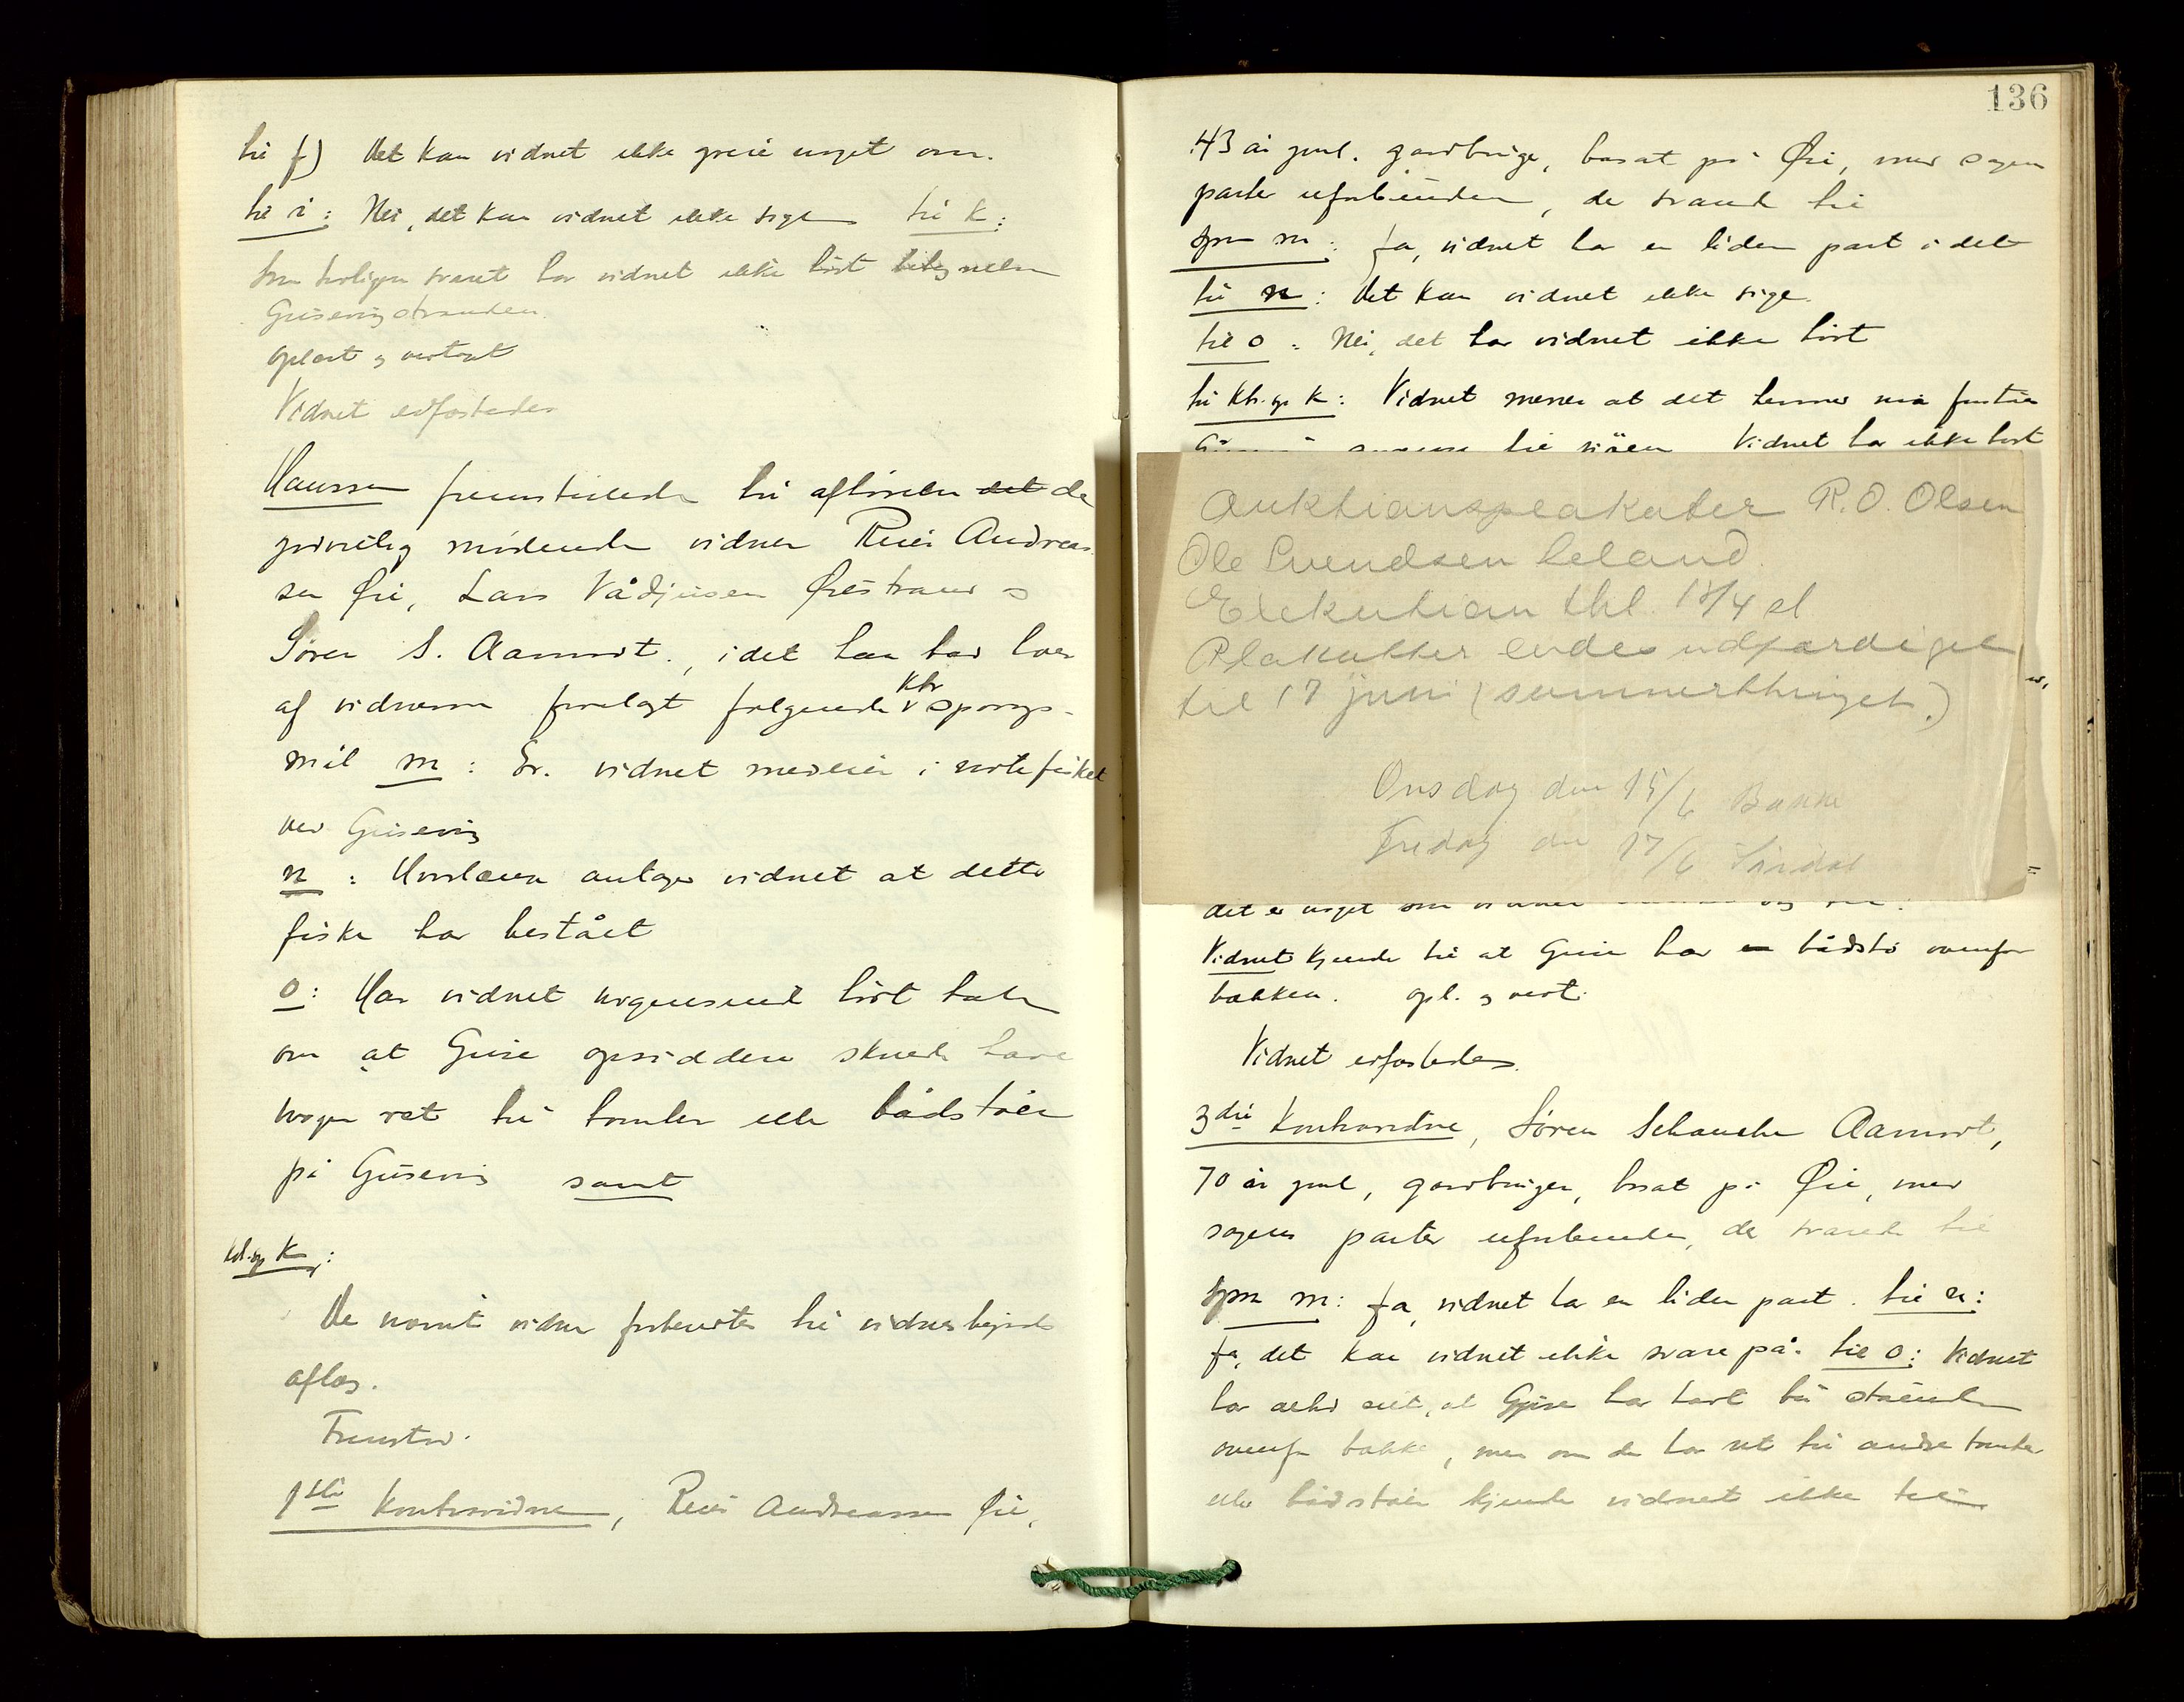 til f) Det kan vidnet ikke greie noget om.
til i: Nei, det kan vidnet ikke sige til k:
Som tidligere svaret har vidnet ikke hört
Grisevigstranden.
oplæst og vedtat
Vidnet edfæstedes
Hanssen fremstillede til afhörelse det de
godvillig mödende vidner Reier Andreas-
sen Øie, Lars Øiestrand og
Sören S. Aamodt., idet han bad hver
af vidnerne forelagt fölgende ktr spörgs-
mål m: Er vidnet medeier i notefisket
ved Grisevig
n: Hvorlænge antager vidnet at dette
fiske har bestået
o: Har vidnet nogensinde hört tale
om at Grise opsiddere skulde have
nogen ret til tomter eller bådstöer
på Grisevig samt
ktr.sp k:
De nævnte vidner forberedtes til vidnesbyrds
aflæg.
Fremstod.
1ste kontravidne, Reier Andreassen Øie,
136
43 år gml. gårdbruger, bosat på Øie, med sagens
parter uforbunden, der svarede til
spm m: Ja, vidnet har en liden part i det
til n: Det kan vidnet ikke sige.
til o: Nei, det har vidnet ikke hört
til ktr.sp k: Vidnet mener at det
til sjöen Vidnet har ikke hört
Auktionsplakater R.O. Olsen
Ole Svendsen Leland
Exekution thl. 18/4 d
Plakatter endes udfærdiget
til 17 juni (sommerthinget.)
Onsdag den 15/6 Bakke
Fredag den 17/6 Sirdal
det er noget som
Vidnet kjender til at Grise har en bådstö ovenfor
bakken. opl. og vedt.
Vidnet edfæstedes.
3die kontravidne, Sören Schanche Aamodt,
70 år gml, gårdbruger, bosat på Øie, med
sagens parter uforbunden, der svarede til
Spm m: Ja, vidnet har en liden part. til n:
Ja, det kan vidnet ikke svare på. til o: Vidnet
har altid vidst, at Grise har havt
ovenfor bakke, men om de har ret til andre tomter
eller bådstöer kjender vidnet ikke til